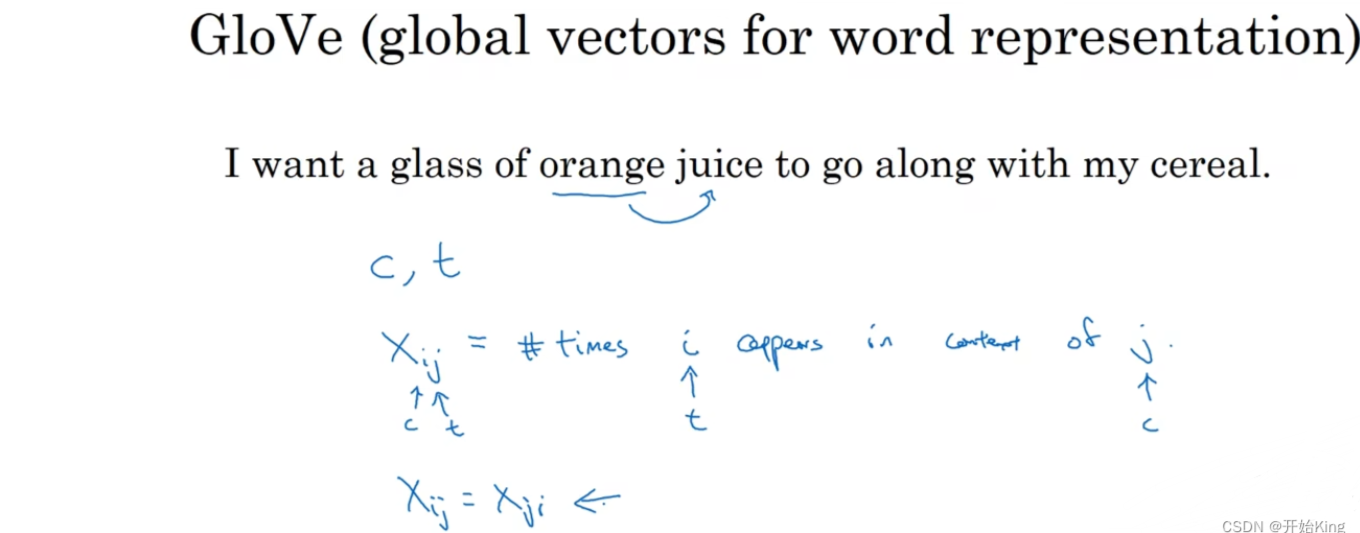 GloVe (global vectors for word representation)
I want a glass of orange juice to go along with my cereal.
c, t
Xij = # times i appers in context of j.
↑ ↑ ↑ ↑
c t t c
Xij = Xji ←
CSDN @开始King